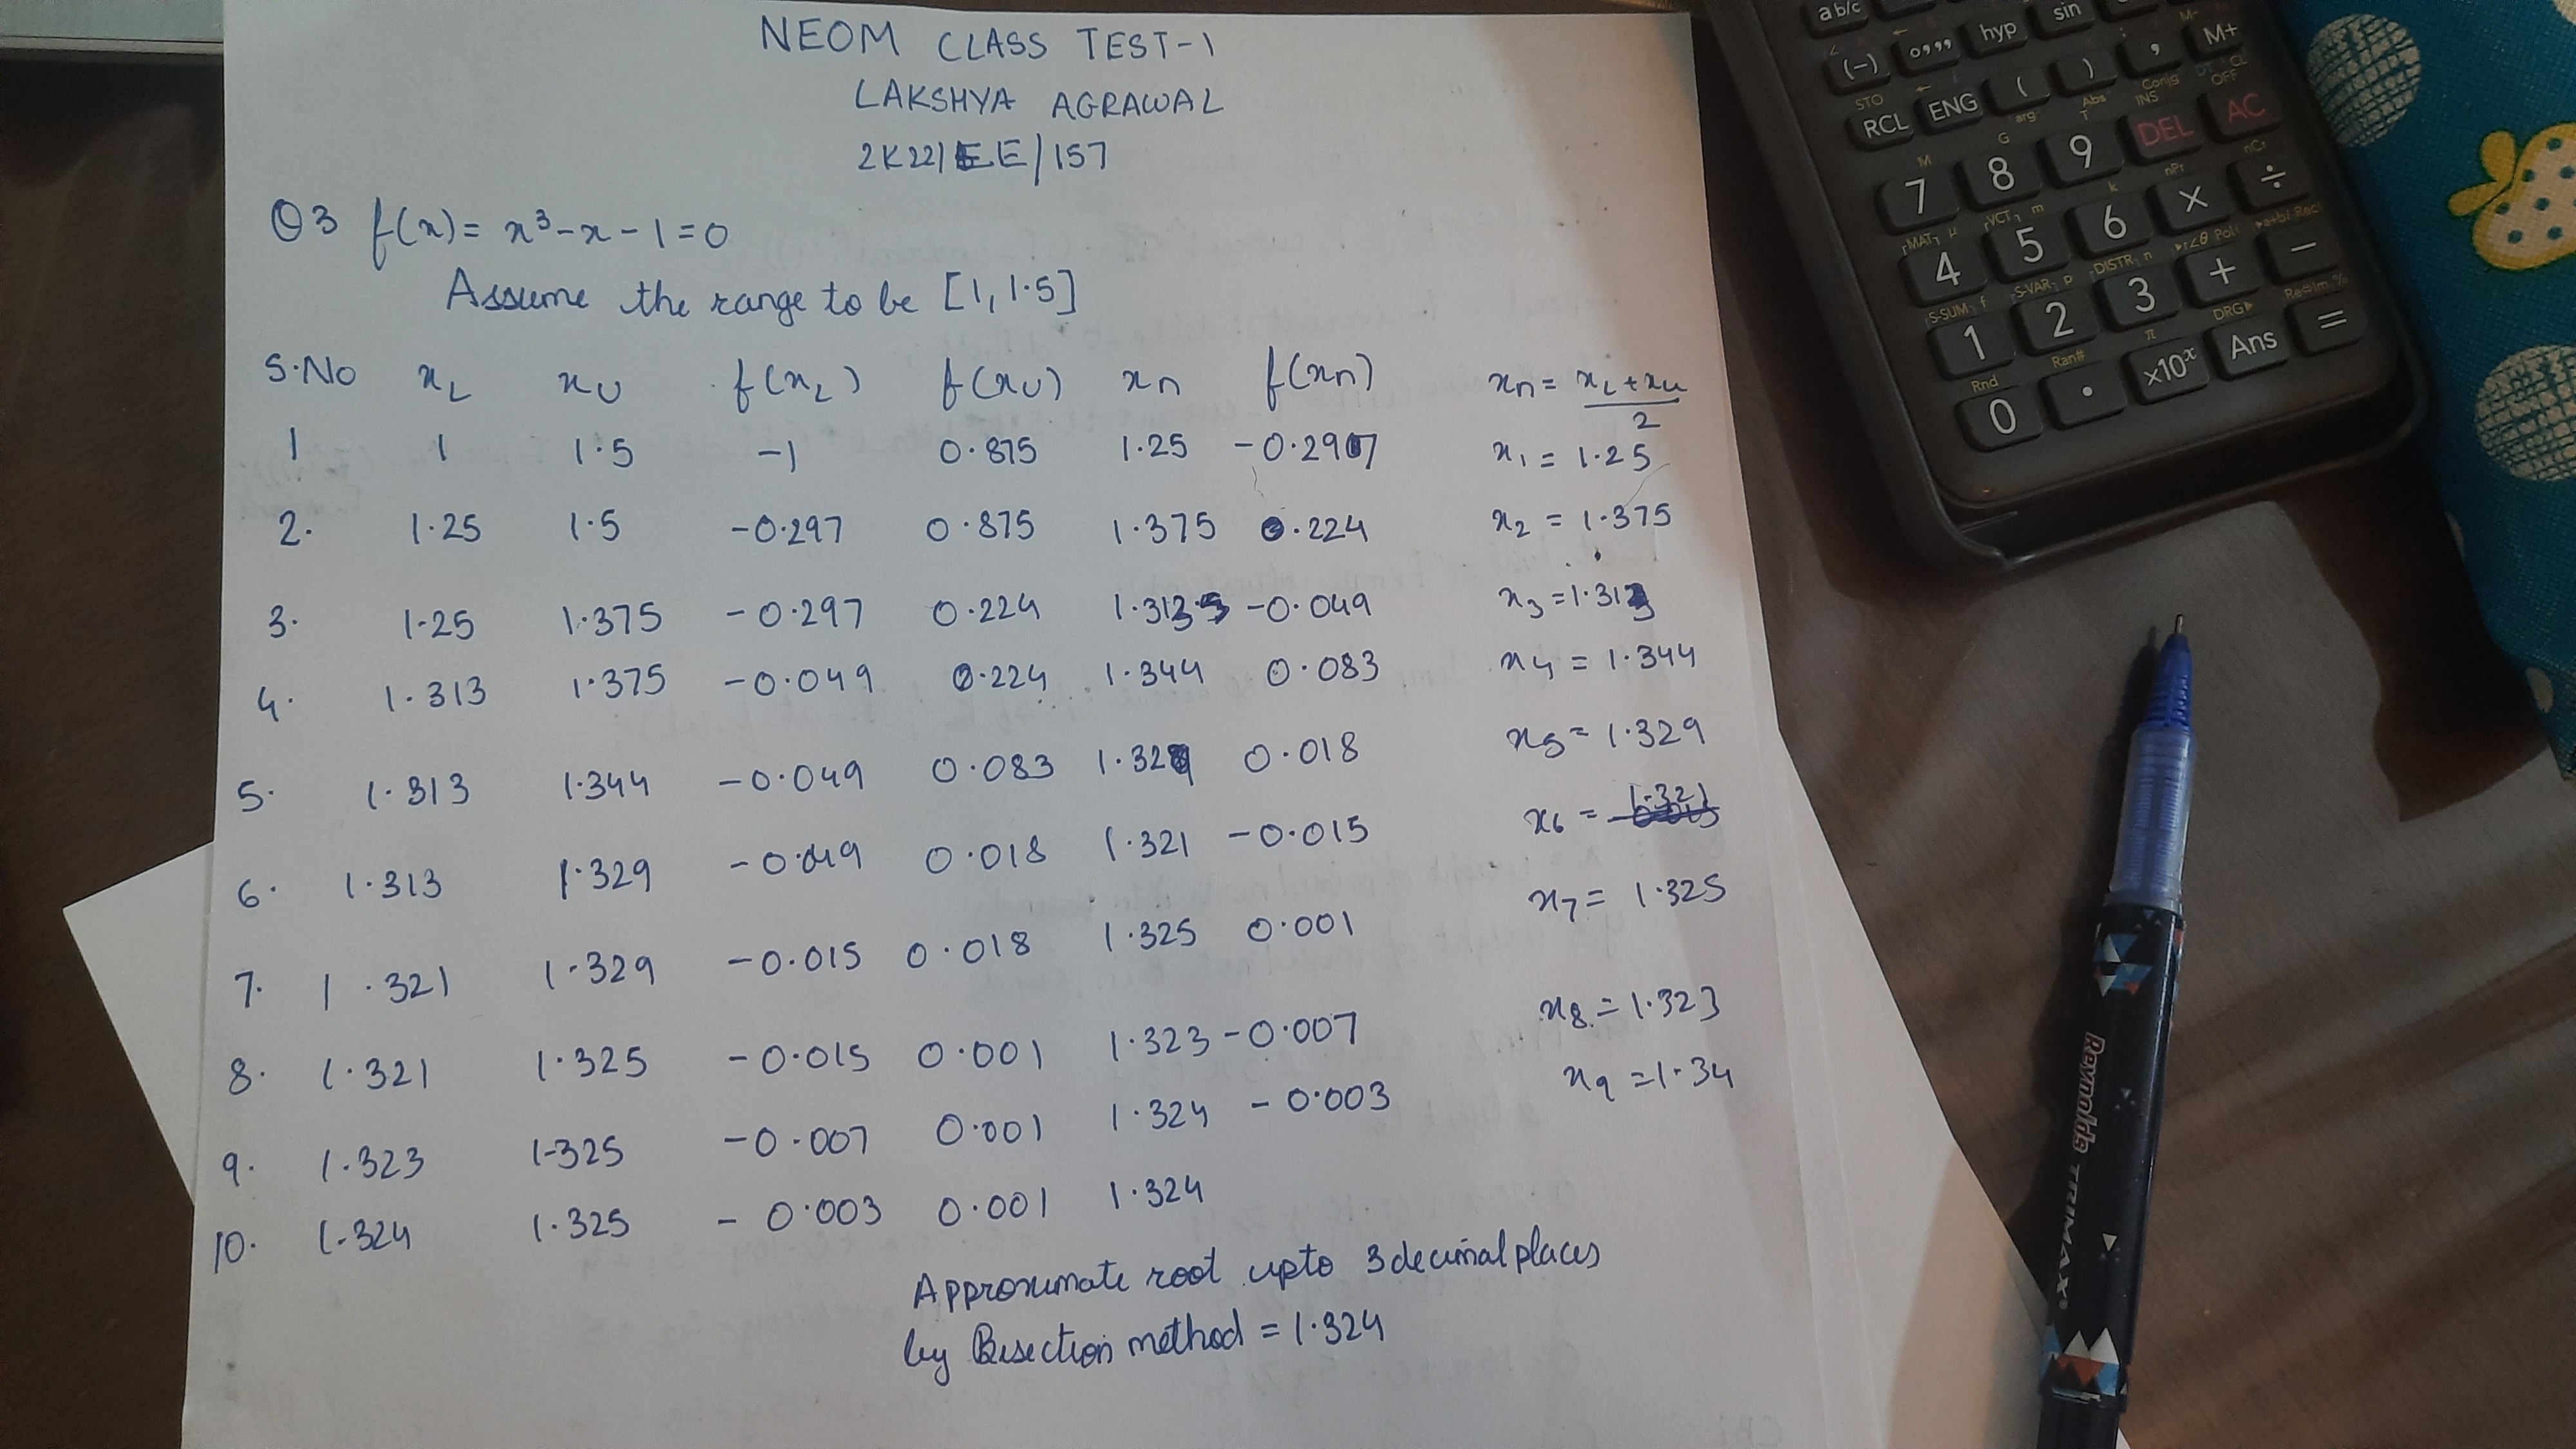 NEOM CLASS TEST-1
LAKSHYA AGRAWAL
2K221EE/157
Q3 f(x) = x³ - x - 1 = 0
Assume the range to be [1, 1.5]
S.No xL xU f(xL) f(xU) xn f(xn) xn = xL + xu / 2
1 1 1.5 -1 0.875 1.25 -0.297 x1 = 1.25
2. 1.25 1.5 -0.297 0.875 1.375 0.224 x2 = 1.375
3. 1.25 1.375 -0.297 0.224 1.313 -0.049 x3 = 1.313
4. 1.313 1.375 -0.049 0.224 1.344 0.083 x4 = 1.344
5. 1.313 1.344 -0.049 0.083 1.329 0.018 x5 = 1.329
6. 1.313 1.329 -0.049 0.018 1.321 -0.015 x6 = 1.321
7. 1.321 1.329 -0.015 0.018 1.325 0.001 x7 = 1.325
8. 1.321 1.325 -0.015 0.001 1.323 -0.007 x8 = 1.323
9. 1.323 1.325 -0.007 0.001 1.324 -0.003 x9 = 1.34
10. 1.324 1.325 -0.003 0.001 1.324
Approximate root upto 3 decimal places
by Bisection method = 1.324
ab/c
(-) °,,, hyp sin
STO
RCL ENG ( ) , M+
7 8 9 DEL AC
4 5 6 × ÷
1 2 3 + -
0 . ×10x Ans =
Rnd Ran# π DRG▸
Reynolds TRIMAX